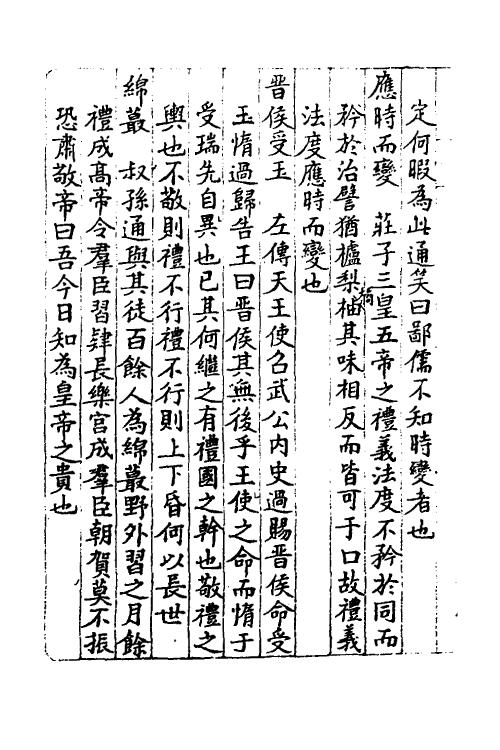 定何暇為此通笑曰鄙儒不知時變者也
應時而變　莊子三皇五帝之禮義法度不矜於同而
矜於治譬猶樝梨橘柚其味相反而皆可于口故禮義
法度應時而變也
晋侯受玉　左傳天王使召武公内史過賜晋侯命受
玉惰過歸告王曰晋侯其無後乎王使之命而惰于
受瑞先自異也已其何繼之有禮國之幹也敬禮之
輿也不敬則禮不行禮不行則上下昏何以長世
綿蕞　叔孫通與其徒百餘人為綿蕞野外習之月餘
禮成髙帝令羣臣習肄長樂宫成羣臣朝賀莫不振
恐肅敬帝曰吾今日知為皇帝之貴也